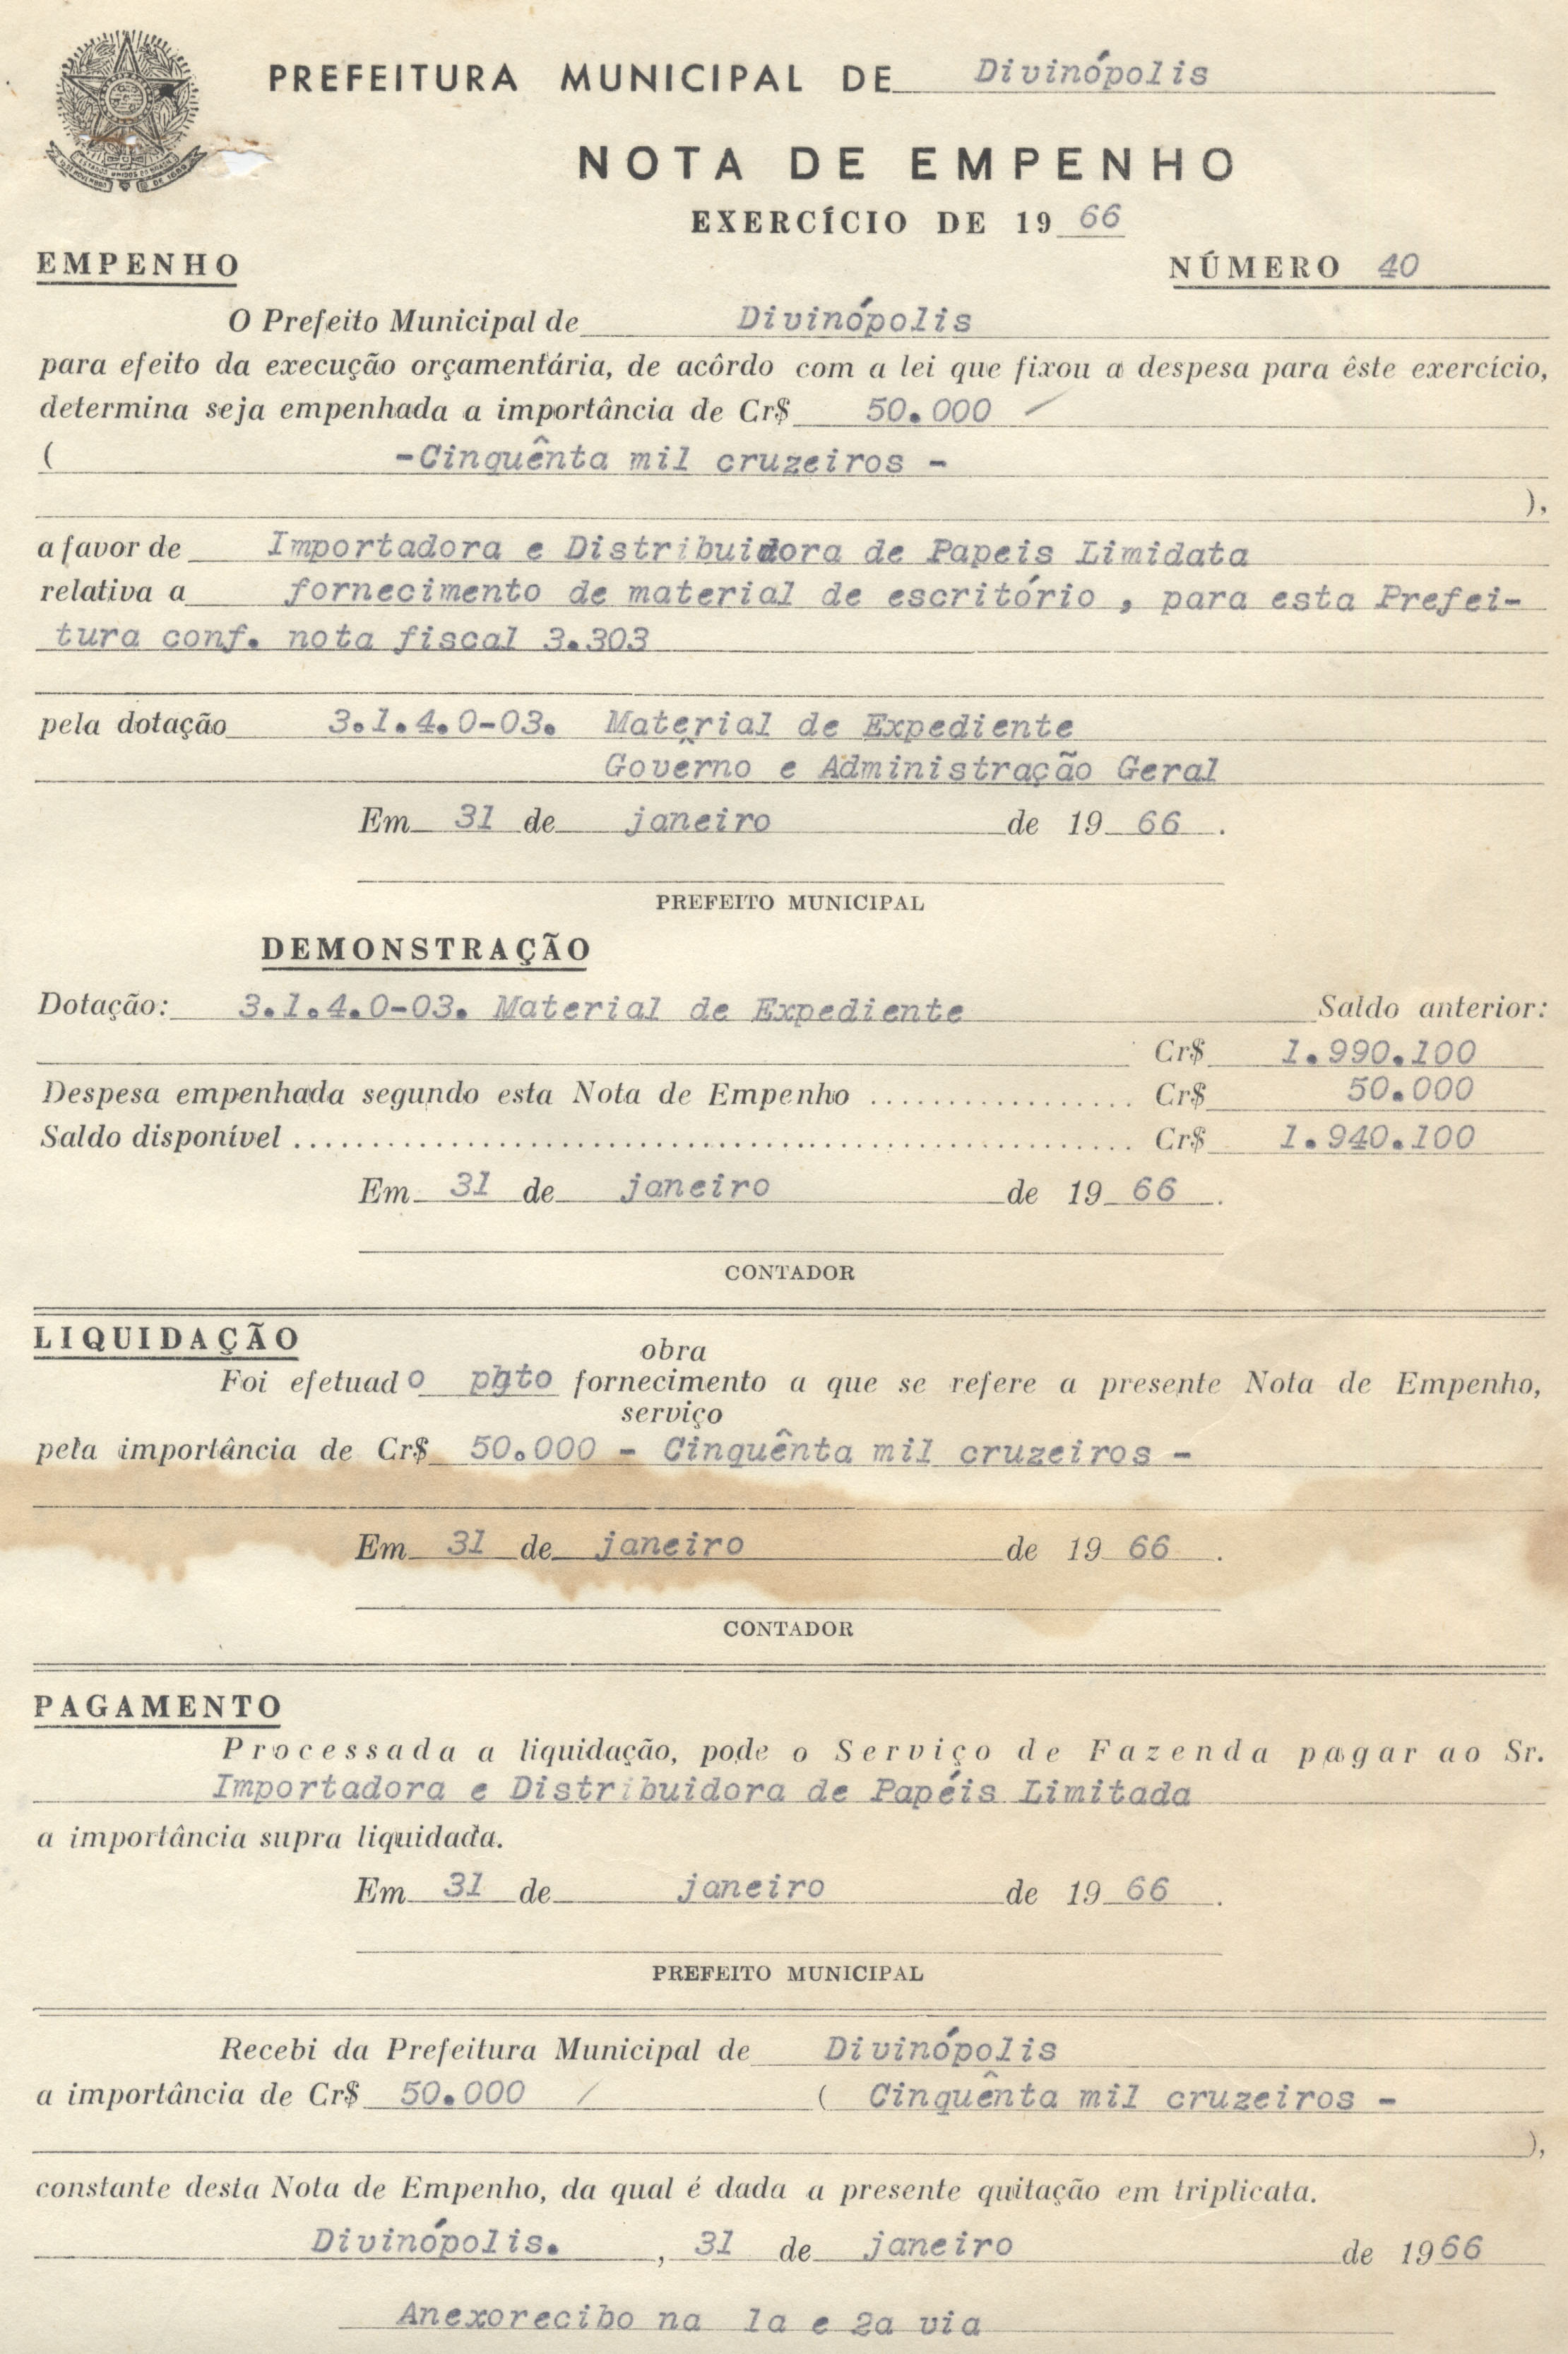 PREFEITURA MUNICIPAL DE Divinópolis
NOTA DE EMPENHO
EXERCÍCIO DE 19 66
EMPENHO
NÚMERO 40
O Prefeito Municipal de Divinópolis
para efeito da execução orçamentária, de acôrdo com a lei que fixou a despesa para êste exercício,
determina seja empenhada a importância de Cr$ 50.000
( -Cinquênta mil cruzeiros -
),
a favor de Importadora e Distribuidora de Papeis Limidata
relativa a fornecimento de material de escritório , para esta Prefei-
tura conf. nota fiscal 3.303
pela dotação 3.1.4.0-03. Material de Expediente
Govêrno e Administração Geral
Em 31 de janeiro de 19 66 .
PREFEITO MUNICIPAL
DEMONSTRAÇÃO
Dotação: 3.1.4.0-03. Material de Expediente Saldo anterior:
Cr$ 1.990.100
Despesa empenhada segundo esta Nota de Empenho ................. Cr$ 50.000
Saldo disponível ..................................................... Cr$ 1.940.100
Em 31 de janeiro de 19 66 .
CONTADOR
LIQUIDAÇÃO
obra
Foi efetuad o pgto fornecimento a que se refere a presente Nota de Empenho,
serviço
pela importância de Cr$ 50.000 - Cinquênta mil cruzeiros -
Em 31 de janeiro de 19 66 .
CONTADOR
PAGAMENTO
Processada a liquidação, pode o Serviço de Fazenda pagar ao Sr.
Importadora e Distribuidora de Papéis Limitada
a importância supra liquidada.
Em 31 de janeiro de 19 66 .
PREFEITO MUNICIPAL
Recebi da Prefeitura Municipal de Divinópolis
a importância de Cr$ 50.000 / ( Cinquênta mil cruzeiros -
),
constante desta Nota de Empenho, da qual é dada a presente quitação em triplicata.
Divinópolis. , 31 de janeiro de 1966
Anexorecibo na 1a e 2a via